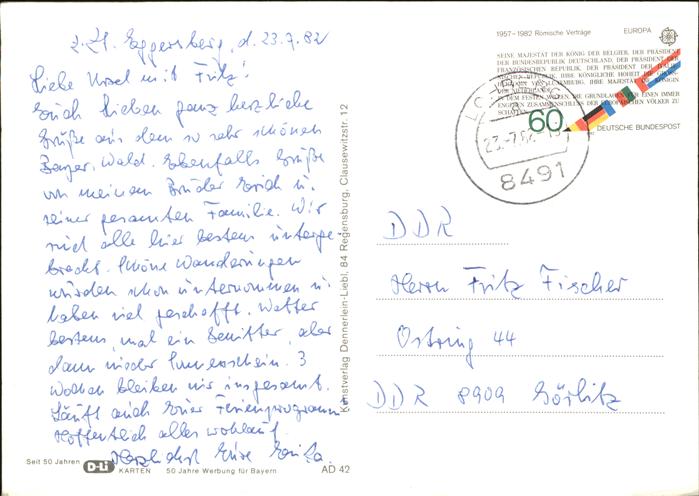 z. Zt. Eggersberg, d. 23.7.82
Liebe Ursel mit Fritz!
Euch Lieben ganz herzliche
Grüße aus dem so sehr schönen
Bayer. Wald. Ebenfalls Grüße
von meinem Bruder Erich u.
seiner gesamten Familie. Wir
sind alle hier bestens unterge-
bracht. Schöne Wanderungen
wurden schon unternommen u.
haben viel geschafft. Wetter
bestens, mal ein Gewitter, aber
dann wieder Sonnenschein. 3
Wochen bleiben wir insgesamt.
Läuft auch Euer Ferienprogramm
Hoffentlich alles wohlauf.
Herzlichst Eure
Seit 50 Jahren D-Li KARTEN 50 Jahre Werbung für Bayern
AD 42
Kunstverlag Dennerlein-Liebl, 84 Regensburg, Clausewitzstr. 12
1957–1982 Römische Verträge EUROPA
SEINE MAJESTÄT DER KÖNIG DER BELGIER, DER PRÄSIDENT
DER BUNDESREPUBLIK DEUTSCHLAND, DER PRÄSIDENT DER
FRANZÖSISCHEN REPUBLIK, DER PRÄSIDENT DER
60
DEUTSCHE BUNDESPOST
23.-7.82
8491
DDR
Herrn Fritz Fischer
Ostring 44
DDR 8909 Görlitz